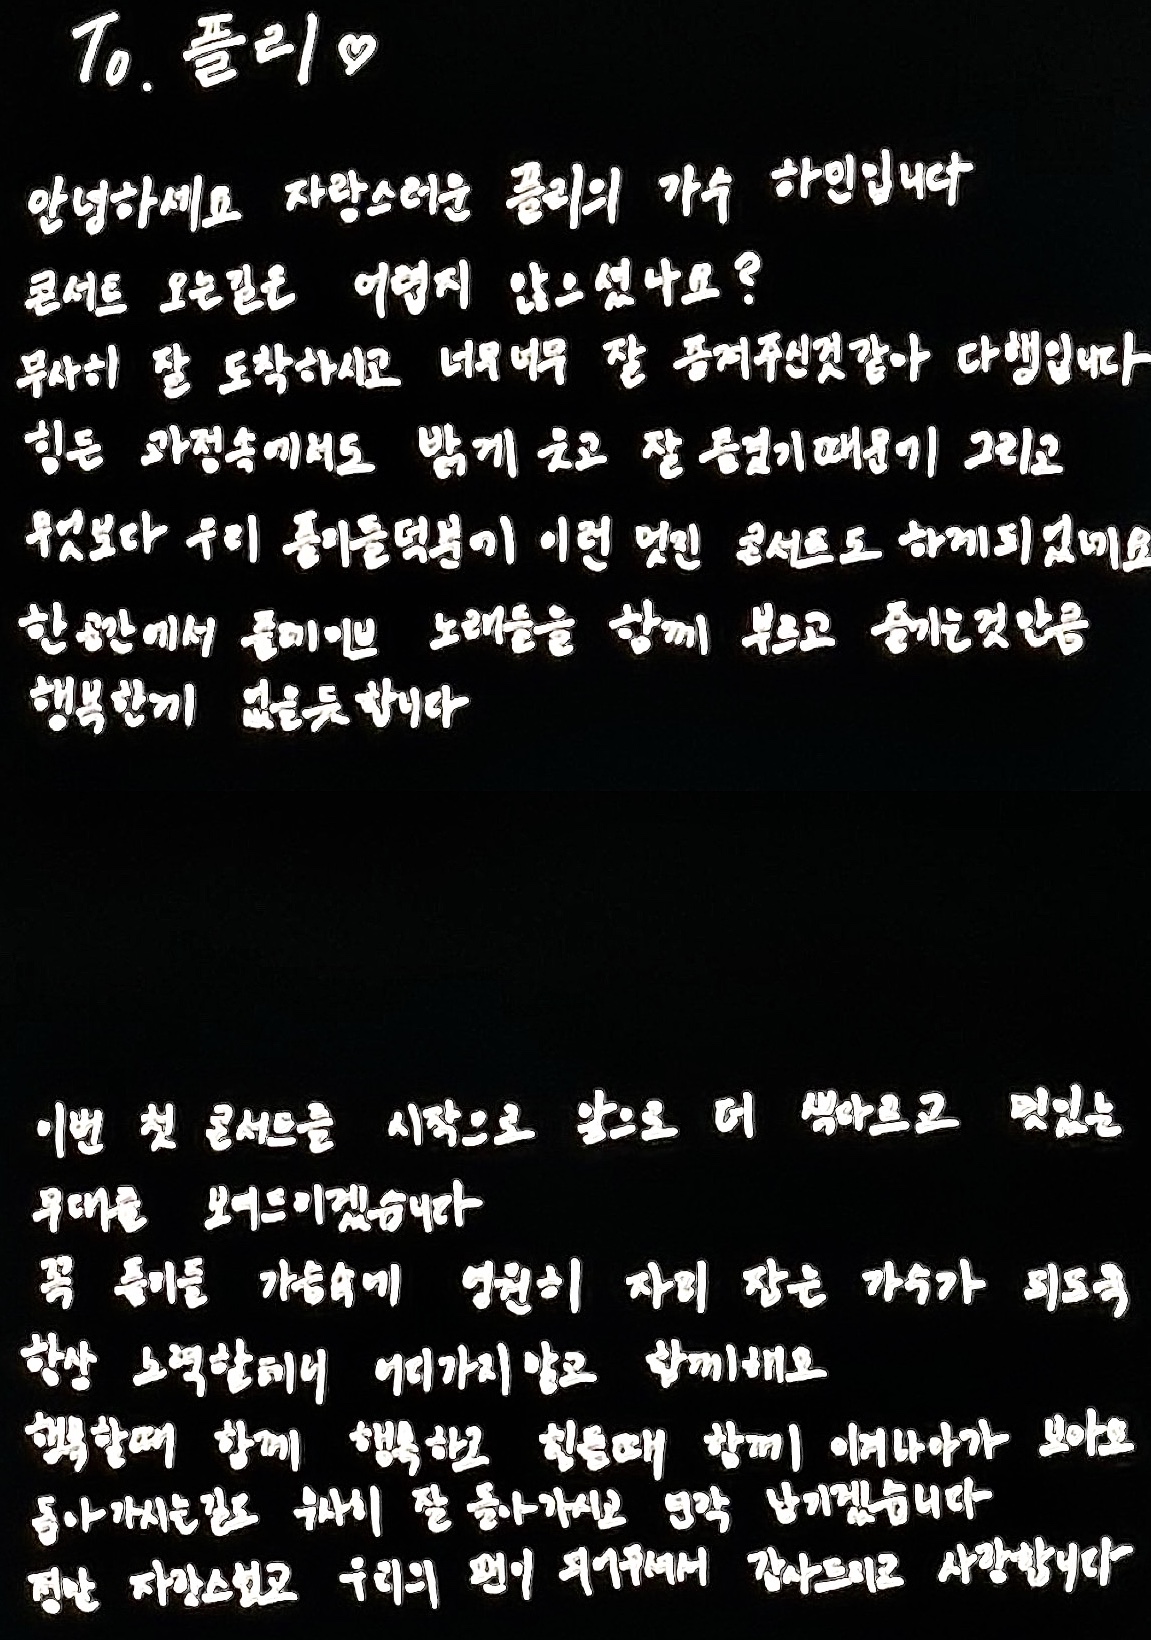 To. 플리♡
안녕하세요 자랑스러운 플리의 가수 하민입니다
콘서트 오는길은 어렵지 않으셨나요?
무사히 잘 도착하시고 너무너무 잘 즐겨주신것같아 다행입니다
힘든 과정속에서도 밝게 웃고 잘 즐겼기때문에 그리고
무엇보다 우리 플리들덕분에 이런 멋진 콘서트도 하게되었네요
한 공간에서 플레이브 노래들을 함께 부르고 즐기는것 만큼
행복한게 없을듯 합니다
이번 첫 콘서트를 시작으로 앞으로 더 색다르고 멋있는
무대를 보여드리겠습니다
꼭 플리들 가슴속에 영원히 자리 잡는 가수가 되도록
항상 노력할테니 어디가지 말고 함께해요
행복할때 함께 행복하고 힘들때 함께 이겨나아가 보아요
돌아가시는길도 무사히 잘 돌아가시고 연락 남기겠습니다
정말 자랑스럽고 우리의 팬이 되어주셔서 감사드리고 사랑합니다